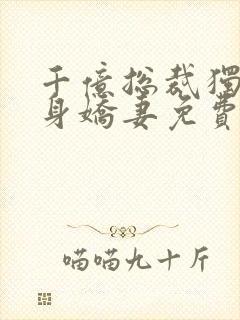 千億總裁獨
身嬌妻免費
喵喵九十斤